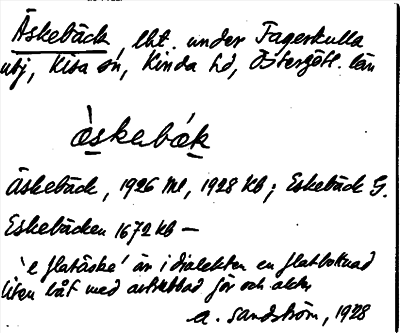 Äskebäck, lht. under Fagerskulla
utj, Kisa sn, Kinda hd, Östergötl. län
ä̀skebä́k
Äskebäck, 1926 ml, 1928 kb; Eskebäck G.
Eskebäcken 1672 kb —
'e flatäska' är i dialekten en flatbottnad
liten båt med för och akter
A. Sandström, 1928